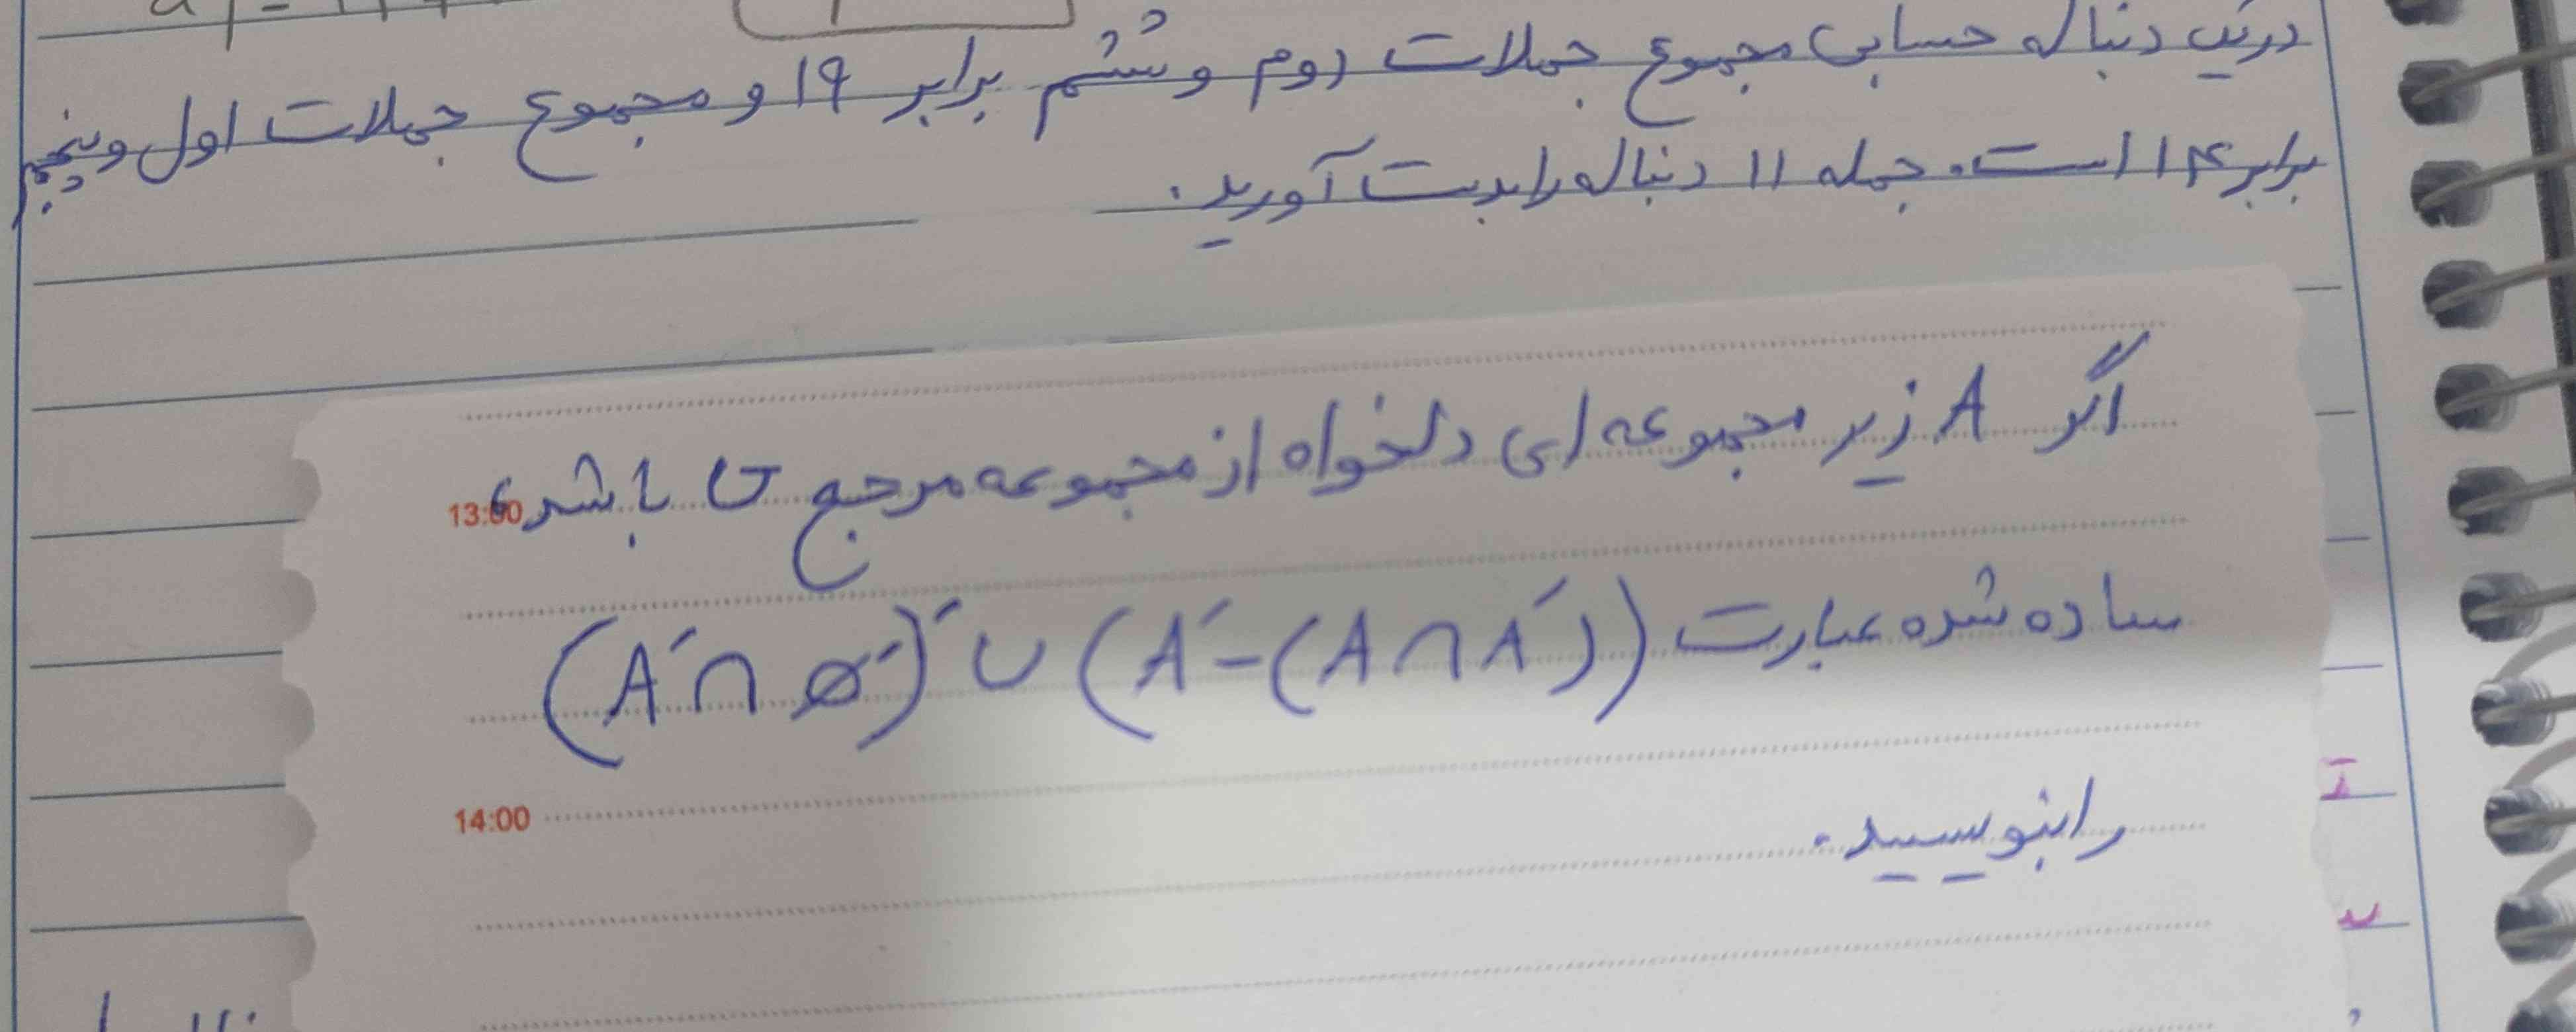 در یک دنباله حسابی مجموع جملات دوم و ششم برابر ۱۹ و مجموع جملات اول و پنجم
برابر ۱۴ است. جمله ۱۱ دنباله را بدست آورید.
اگر A زیر مجموعه ای دلخواه از مجموعه مرجع U باشد،
13:00
ساده شده عبارت (A′∩∅′)′∪(A′−(A∩A′))
14:00
را بنویسید.